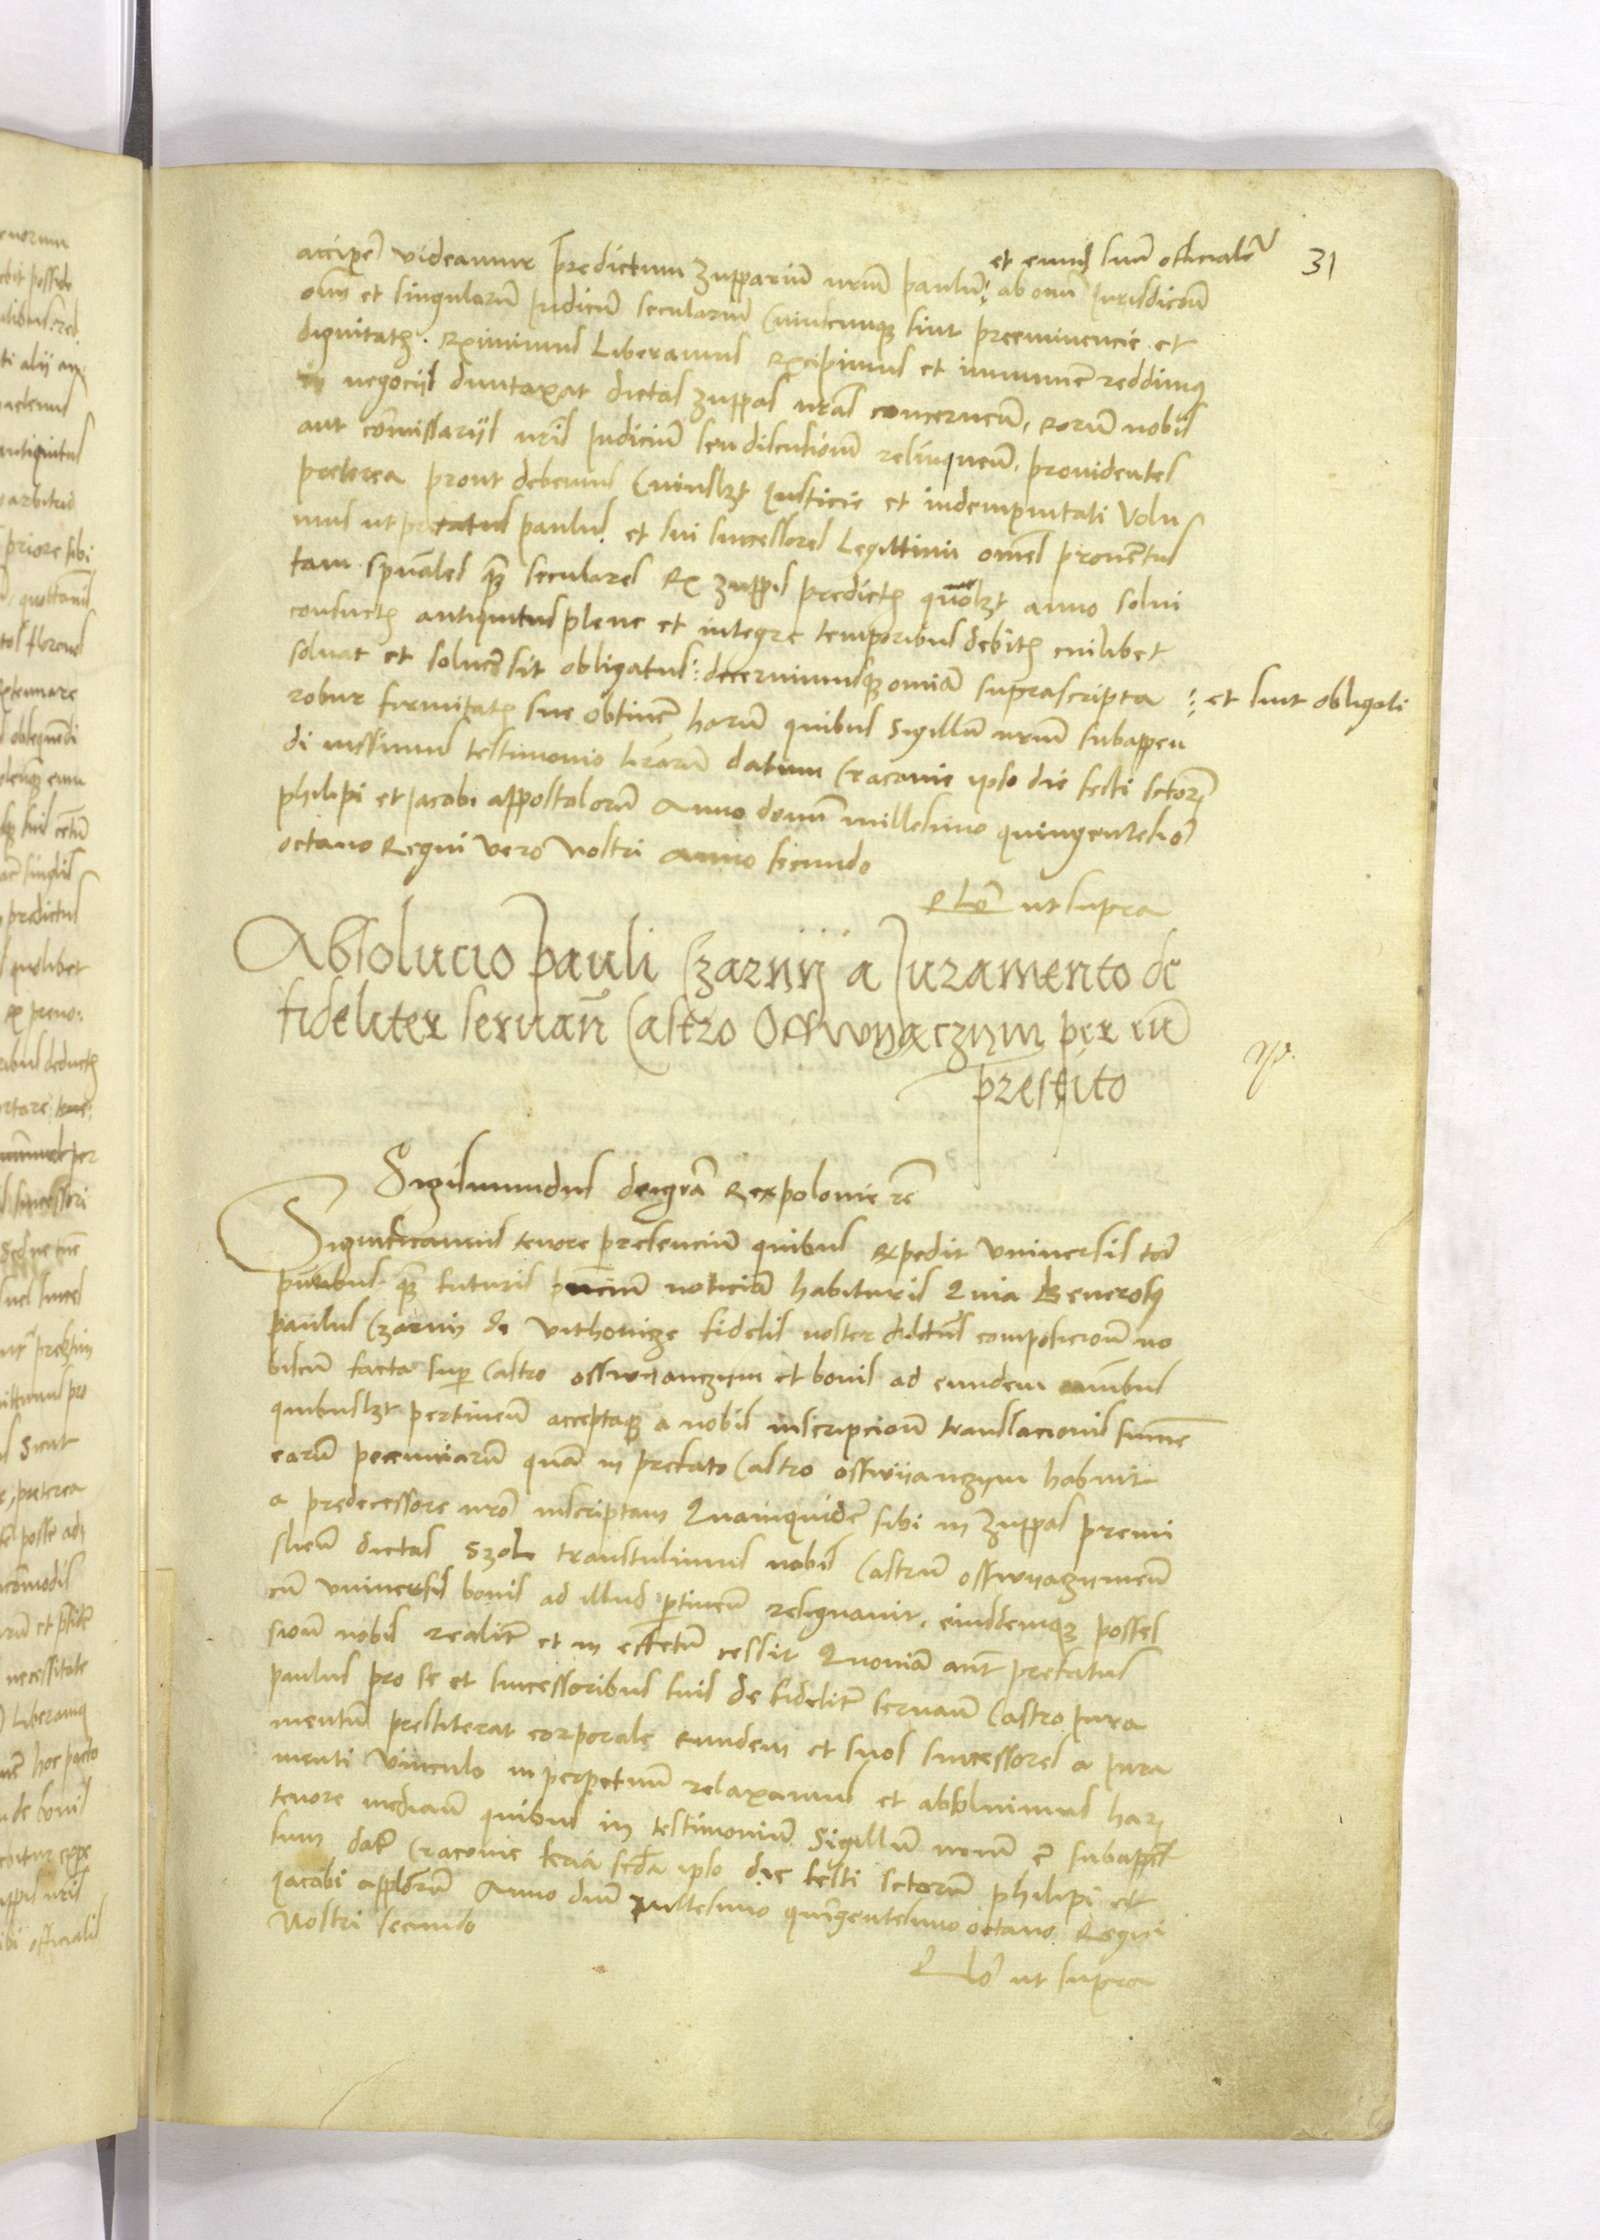 31
et eund suu officiale
accipe videamur predictum zupparium nrum paulu: ab omi Iurisdicoe
oim et singularu Iudicum seculariu Cuiuscunq sint preeminencie et
dignitatis. Eximimus Liberamus Excipimus et immune reddimus
in negocijs duntaxat dictas zuppas nras concernen, eorum nobis
aut comissarijs nris Iudiciu seu discutionem relinquen. prouidentes
preterea prout debemus Cuiuslzt Iusticie et indempnitati Volu
mus ut prefatus paulus. et sui successores Legittimi omes prouentus
tam spuales q seculares Ex zuppis predictis quolzt anno solui
consuetis antiquitus plene et integre temporibus debitis cuilibet
soluat et soluere sit obligatus: decernimusq omia suprascripta :et sint obligati
robur firmitatis sue obtinere haru quibus Sigillum nrum subappen
di iussimus testimonio lrarum datum Cracouie ipso die festi sctorum
philipi et Jacobi appostolorum Anno domini millesimo quingentesimo
octauo Regni vero Nostri anno secundo
Rlo ut supra
Absolucio pauli Czarnij a Juramento de
fideliter seruan Castro Osswyaczym per eu
prestito
Sigismundus dei gra Rex polonie rc
Significamus tenore presencium quibus expedit vniuersis tam
pntibus q futuris pncium noticiam habituris Quia Generosus
paulus Czarnij de vithowize fidelis noster dilctus composicione no
biscu facta super Castro osswyanczym et bonis ad eundem omibus
quibuslzt pertinen acceptaq a nobis inscripcione translacionis summe
earum pecuniarum quam in prefato Castro osswyanczym habuit
a predecessore nro inscriptam Quamquidem sibi in zuppas premi
slien dictas Szoli transtulimus nobis Castrum osswyaczimen
cu vniuersis bonis ad illud ptinen resignauit, eiusdemq posses
sione nobis realiter et in effectu cessit Quoniam aut prefatus
paulus pro se et successoribus suis de fideliter seruan Castro Iura
mentum prestiterat corporale Eundem et suos successores a Iura
menti vinculo in perpetuum relaxamus et absoluimus harum
tenore median quibus in testimonium Sigillum nrum e subappen
sum datum Cracouie feria scda ipso die festi sctorum philipi et
Jacobi applorum Anno dni millesimo quingentesimo octauo Regni
Nostri secundo
Rlo ut supra